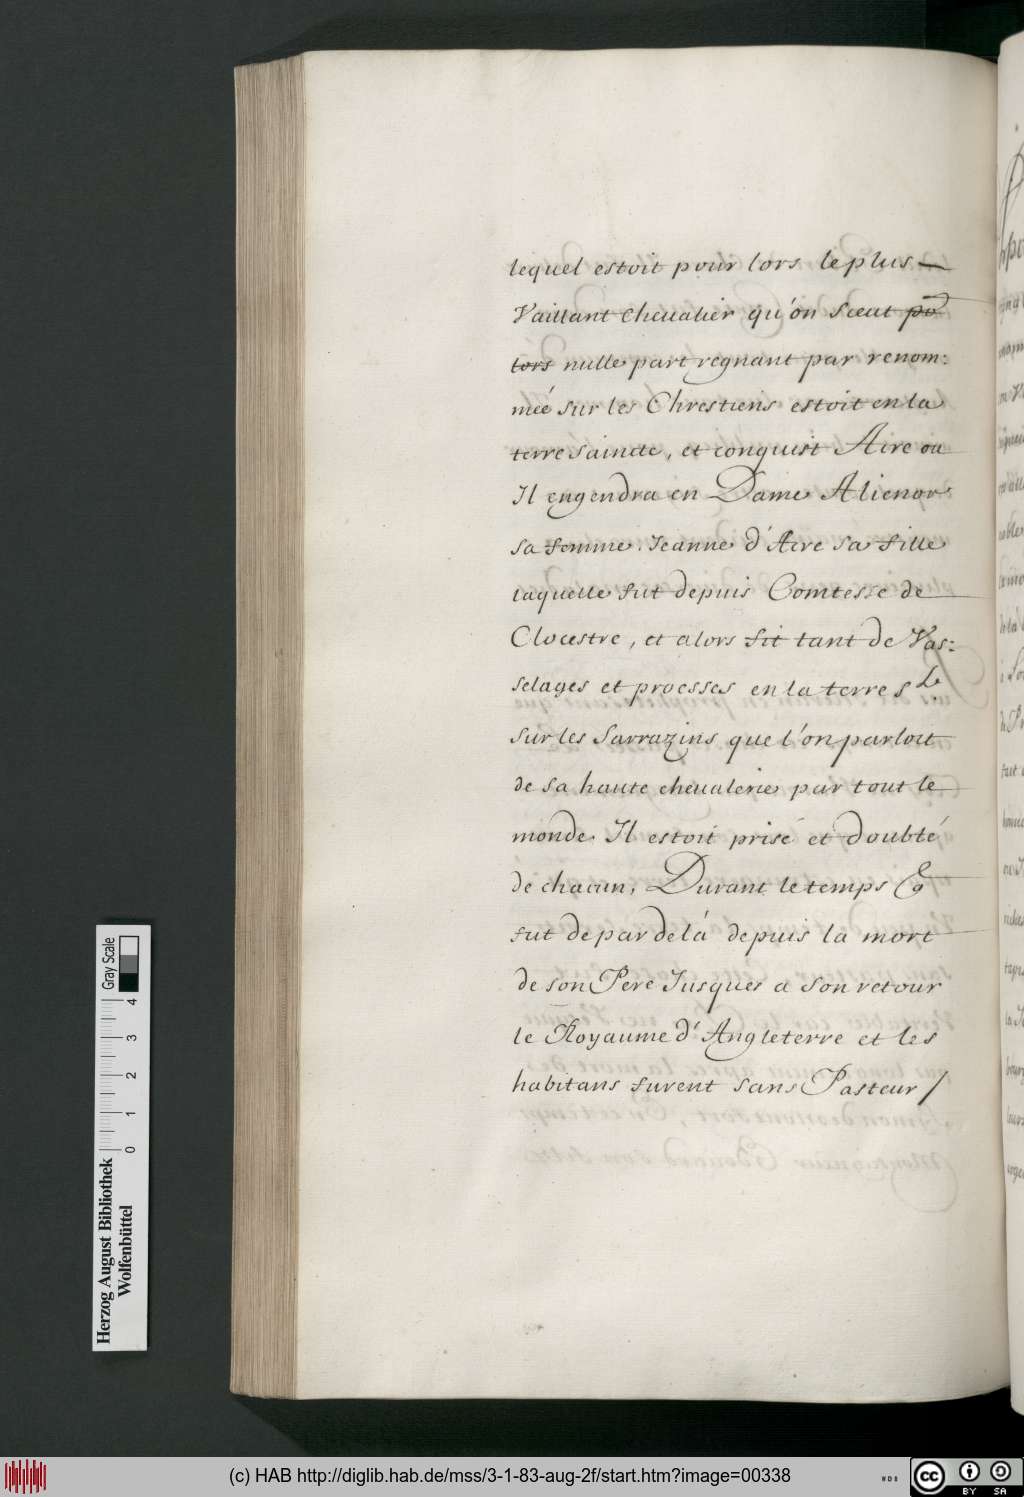 lequel estoit pour lors le plus —
Vaillant cheualier qu'on sceut po
lors nulle part regnant par renom:
meé sur les Chrestiens estoit en la
terre saincte, et conquist Aire ou
Il engendra en Dame Alienor
sa femme. Jeanne d'Acre sa fille
laquelle fut depuis Comtesse de
Clocestre, et alors fit tant de Vas:
selages et proesses en la terre S.te
sur les Sarrazins que l'on parloit
de sa haute cheualerie par tout le
monde. Il estoit prisé et doubté
de chacun, Durant le temps
fut de par delà depuis la mort
de son Pere Jusques a son retour
le Royaume d'Angleterre et les
habitans furent sans Pasteur /
Herzog August Bibliothek
Wolfenbüttel
0 1 2 3 4
Gray Scale
(c) HAB http://diglib.hab.de/mss/3-1-83-aug-2f/start.htm?image=00338
WDB
cc
BY SA